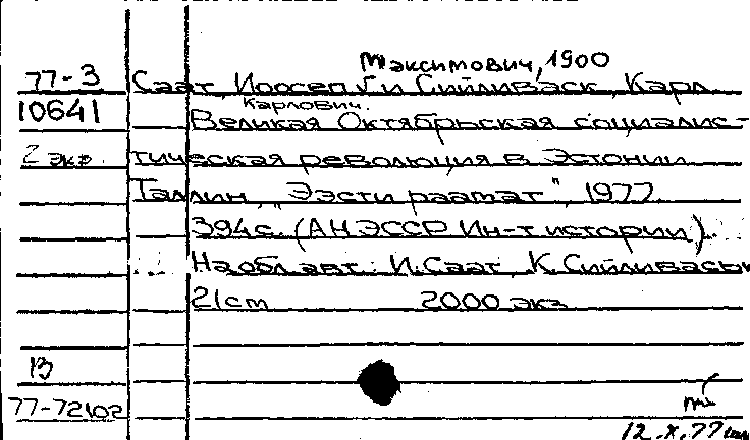 Максимович, 1900
77-3 Саат, Иосеп и Сийливаск, Карл
Карлович.
10641 Великая Октябрьская социалис-
2 экз тическая революция в Эстонии
Таллин, "Ээсти раамат", 1977.
394 с. (АН ЭССР Ин-т истории).
На обл. авт.: И. Саат, К. Сийливаськ
21 cm 2000 экз
В
77-72102
12.X.77